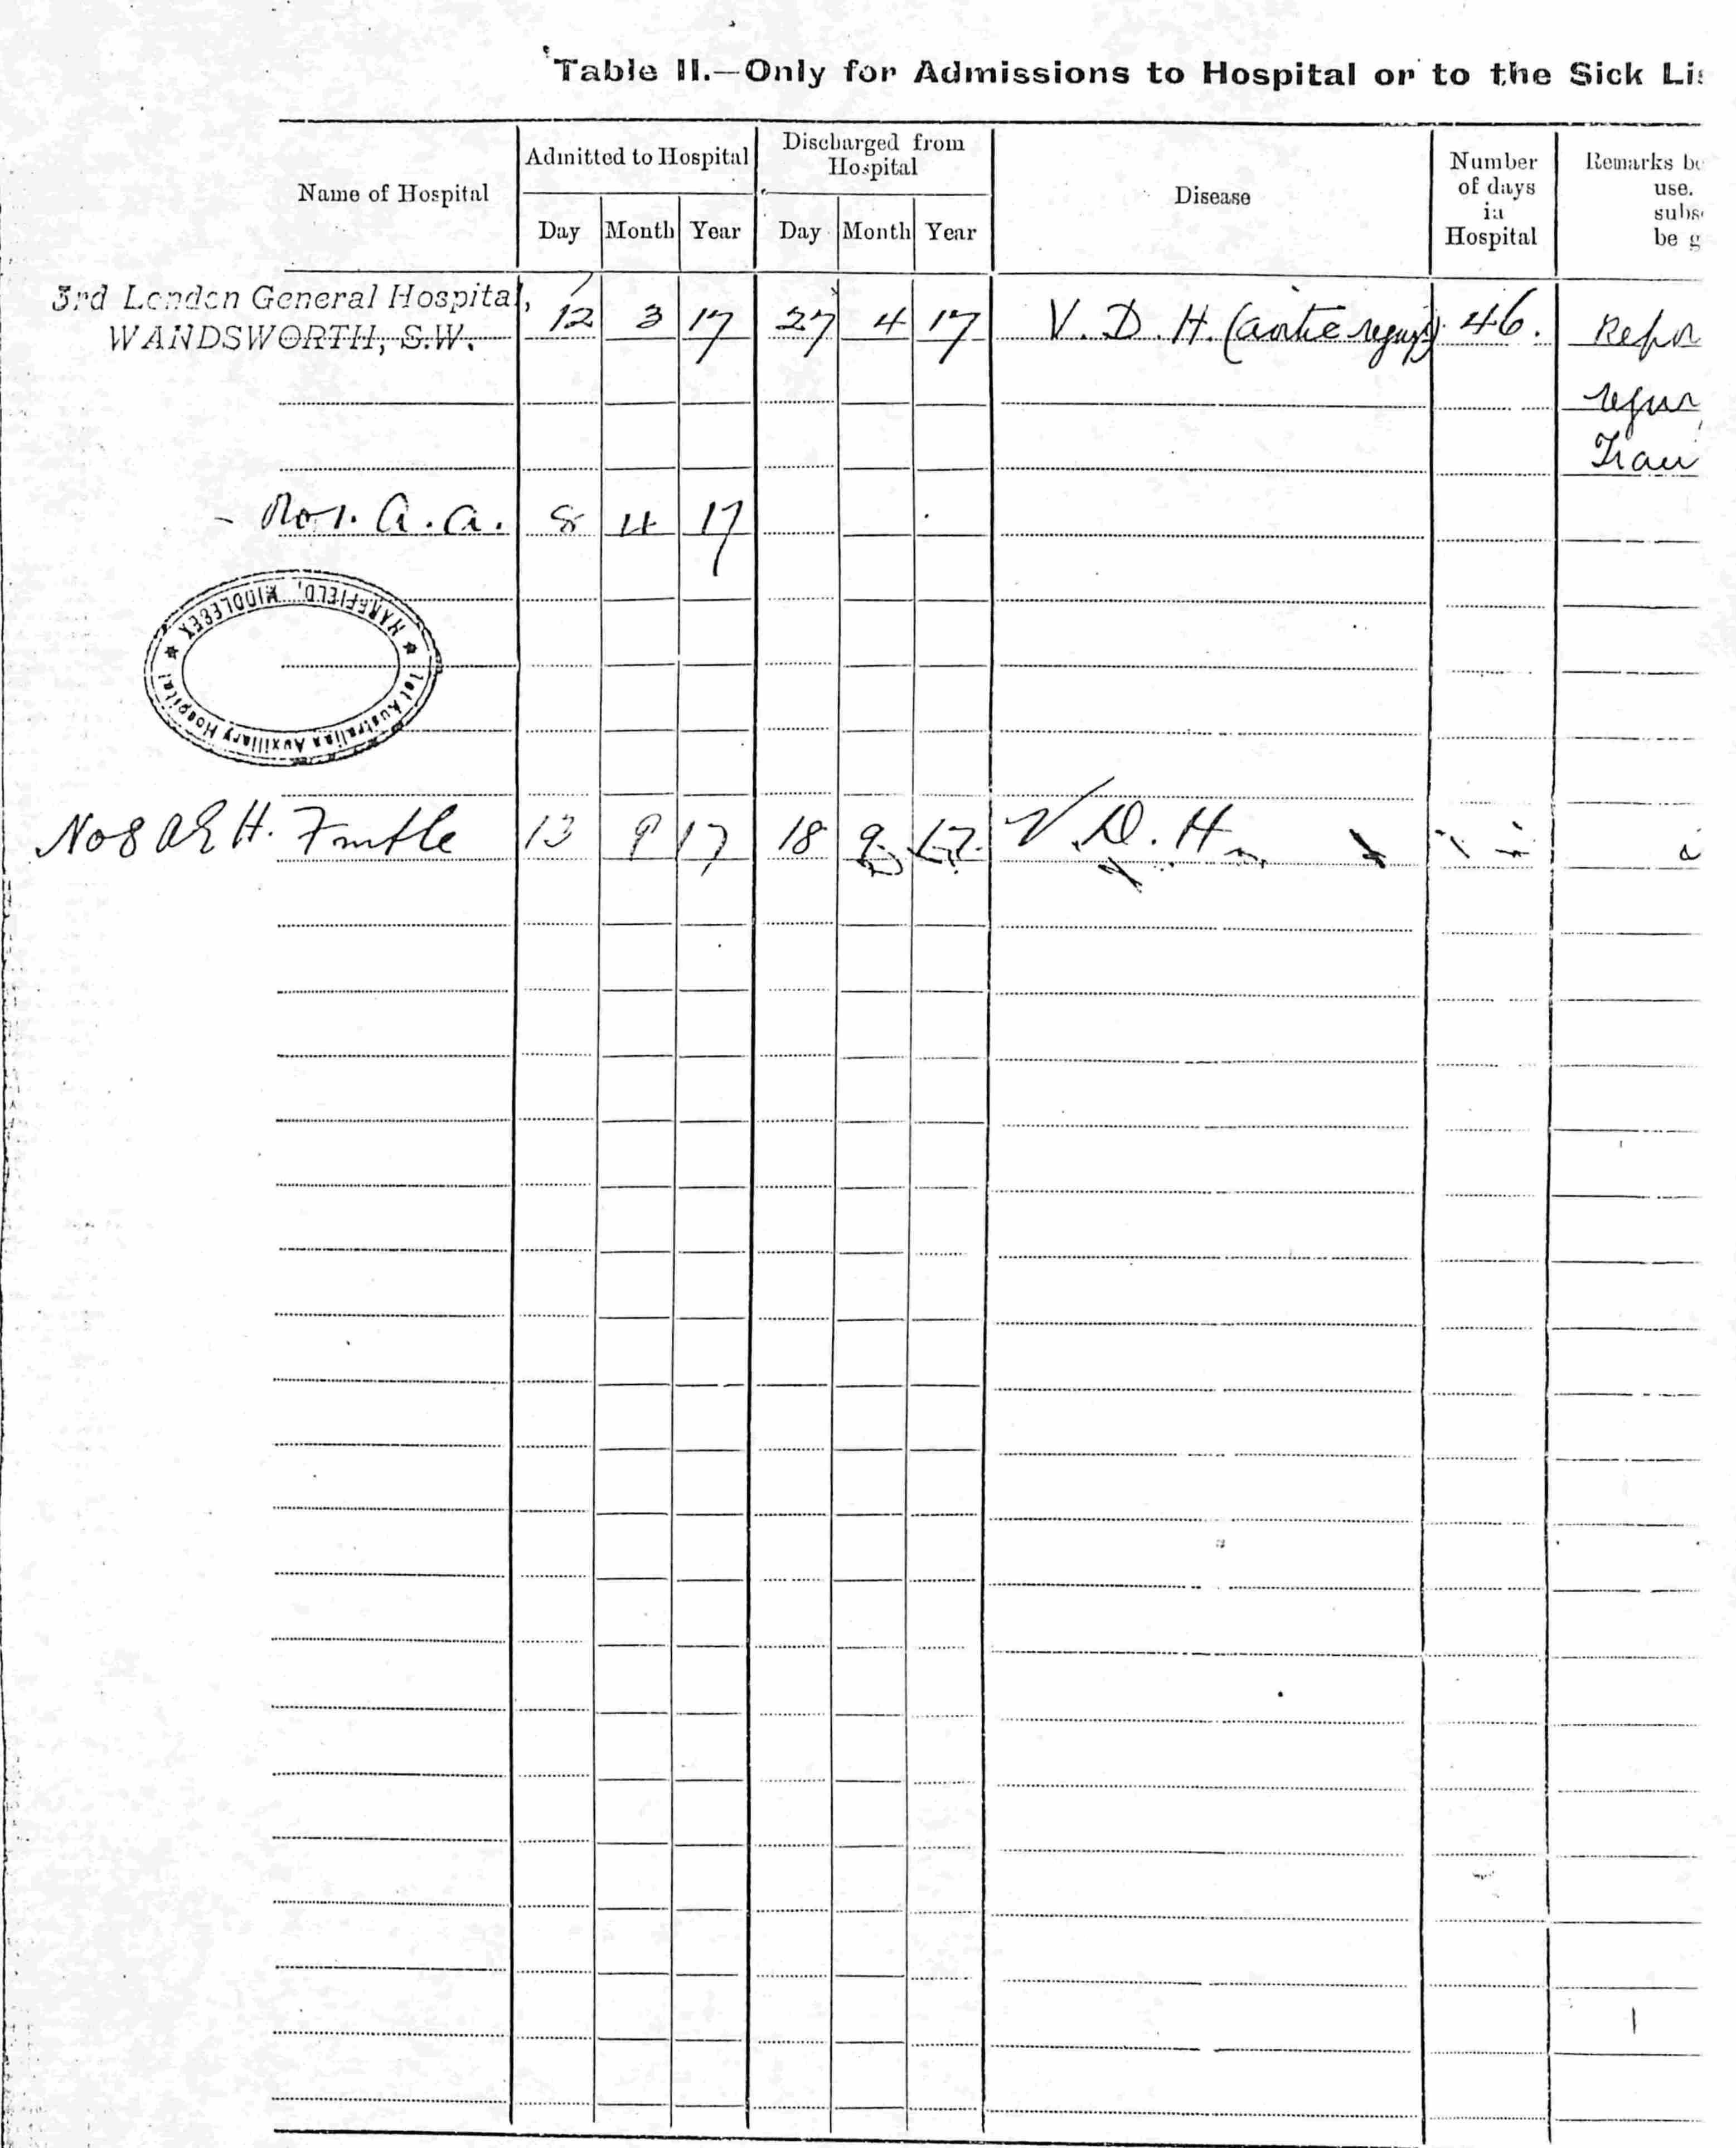 Table II.—Only for Admissions to Hospital or to the Sick Lis
Name of Hospital
Admitted to Hospital
Discharged from
Hospital
Disease
Number
of days
in
Hospital
Remarks be
use.
subs
be g
Day Month Year Day Month Year
3rd London General Hospital,
WANDSWORTH, S.W.
12 3 17 27 4 17 V. D. H. (aortic regurg) 46. Repor
regur
Tran
No 1. A. A. 8 4 17
HAREFIELD, MIDDLESEX
1st Australian Auxiliary Hospital
No 8 A H. 13 9 17 18 9 17 V. D. H.